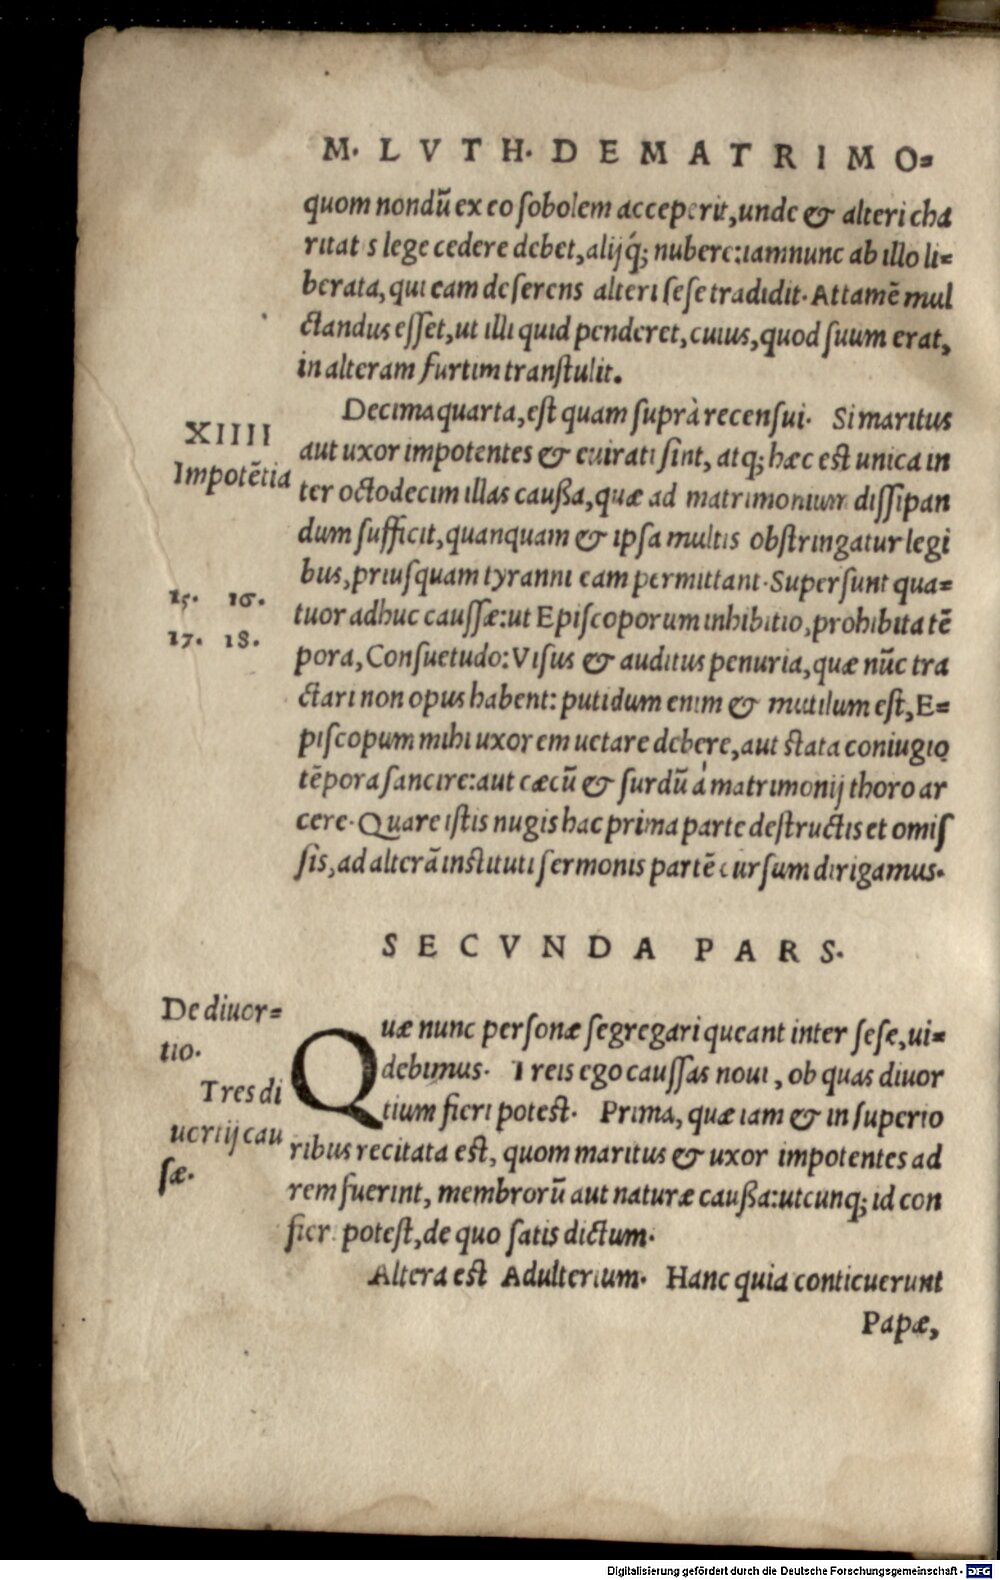 M. L V T H. D E M A T R I M O=
quom nondũ ex eo ſobolem acceperit, unde & alteri cha
ritatis lege cedere debet, alijq́; nubere: iam nunc ab illo li=
berata, qui eam deſerens alteri ſeſe tradidit. Attamẽ mul
ctandus eſſet, ut illi quid penderet, cuius, quod ſuum erat,
in alteram furtim tranſtulit.
Decimaquarta, eſt quam ſuprà recenſui. Si maritus
XIIII
aut uxor impotentes & euirati ſint, atq; hæc eſt unica in
Impotẽtia
ter octodecim illas cauſſa, quæ ad matrimonium diſſipan
dum ſufficit, quanquam & ipſa multis obſtringatur legi
bus, priuſquam tyranni eam permittant. Superſunt qua=
15. 16.
tuor adhuc cauſſæ: ut Epiſcoporum inhibitio, prohibita tẽ
17. 18.
pora, Conſuetudo: Viſus & auditus penuria, quæ nũc tra
ctari non opus habent: putidum enim & mutilum eſt, E=
piſcopum mihi uxorem uetare debere, aut ſtata coniugio
tẽpora ſancire: aut cæcũ & ſurdũ à matrimonij thoro ar
cere. Quare iſtis nugis hac prima parte deſtructis et omiſ
ſis, ad alterã inſtituti ſermonis partẽ curſum dirigamus.
S E C V N D A P A R S.
De diuor=
tio.
Tres di
uortij cau
ſæ.
Quæ nunc perſonæ ſegregari queant inter ſeſe, ui=
debimus. Treis ego cauſſas noui, ob quas diuor
tium fieri poteſt. Prima, quæ iam & in ſuperio
ribus recitata eſt, quom maritus & uxor impotentes ad
rem fuerint, membrorũ aut naturæ cauſſa: utcunq; id con
fieri poteſt, de quo ſatis dictum.
Altera eſt Adulterium. Hanc quia conticuerunt
Papæ,
Digitalisierung gefördert durch die Deutsche Forschungsgemeinschaft - DFG